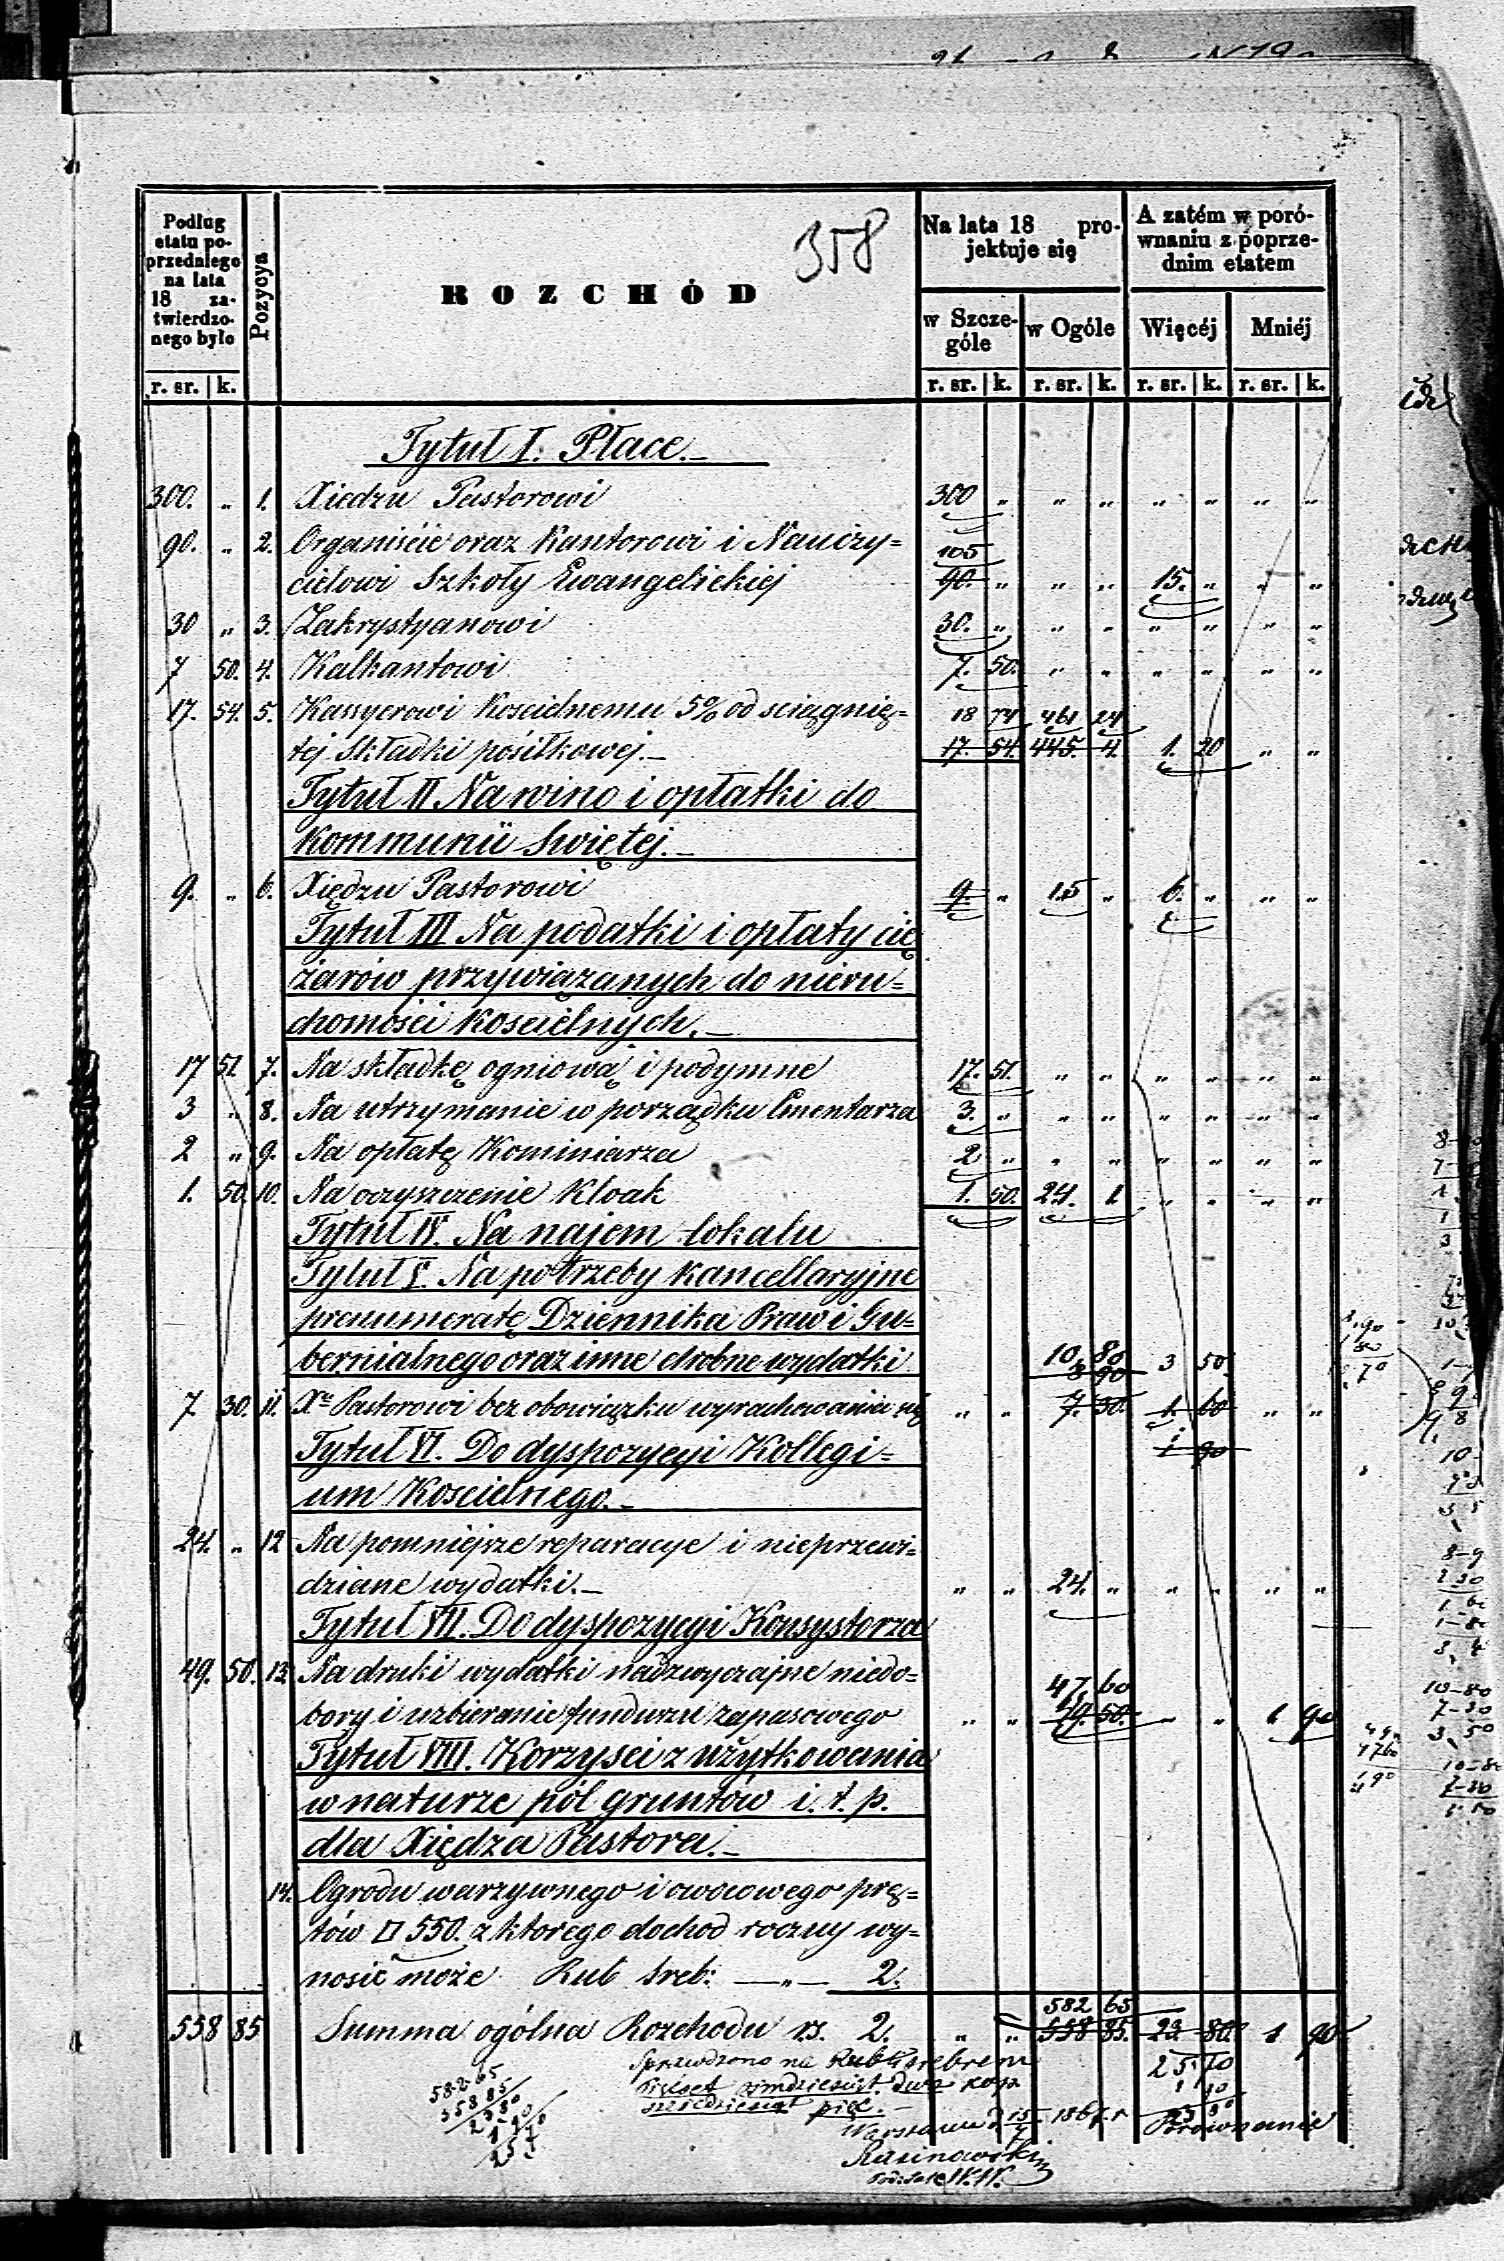 358
Podług etatu poprzedniego na lata 18 zatwierdzonego było
Pozycya
ROZCHÓD
Na lata 18 projektuje się
A zatém w porównaniu z poprzednim etatem
w Szczególe
w Ogóle
Więcéj
Mniéj
r. sr. k. r. sr. k. r. sr. k. r. sr. k. r. sr. k.
Tytuł I. Płace.
300. „ 1. Xiedzu Pastorowi 300 „ „ „ „ „ „ „
90. „ 2. Organiście oraz Kantorowi i Nauczy= 105
cielowi Szkoły Ewangelickiej 90. „ „ „ 15. „ „ „
30 „ 3. Zakrystyanowi 30. „ „ „ „ „ „ „
7 50. 4. Kalkantowi 7. 50. „ „ „ „ „ „
17. 54. 5. Kassyerowi Koscielnemu 5% od sciągnię= 18 74 461 24
tej Składki posiłkowej. 17. 54. 445. 4. 1. 20 „ „
Tytuł II Na wino i opłatki do
Kommunii Swiętej.
9. „ 6. Xiędzu Pastorowi 9. „ 15 „ 6. „ „ „
Tytuł III Na podatki i opłaty cię
żarów przywiązanych do nieru=
chomości Koscielnych.
17 51. 7. Na składkę ogniową i podymne 17. 51. „ „ „ „ „ „
3 „ 8. Na utrzymanie w porządku Cmentarza 3. „ „ „ „ „ „ „
2 „ 9. Na opłatę Kominiarza 2 „ „ „ „ „ „ „
1. 50. 10. Na oczyszczenie Kloak 1. 50. 24. 1 „ „ „ „
Tytuł IV. Na najem lokalu
Tytuł V. Na potrzeby kancellaryjne
prenumeratę Dziennika Praw i Gu=
bernialnego oraz inne drobne wydatki 10. 80 3 50.
8 90
7. 30. 11. Xu Pastorowi bez obowiązku wyrachowania się „ „ 7. 30. 1. 60 „ „
Tytuł VI. Do dyspozycyi Kollegi= 1 90
um Koscielnego.
24. „ 12 Na pomniejsze reparacye i nieprzewi=
dziane wydatki. „ „ 24. „ „ „ „ „
Tytuł VII. Do dyspozycyi Konsystorza
49. 50. 13. Na druki wydatki nadzwyczajne niedo= 47 60
bory i uzbieranie funduszu zapasowego „ „ 49. 50. „ „ 1. 90
Tytuł VIII. Korzysci z użytkowania
w naturze pól gruntów i. t. p.
dla Xiędza Pastora.
14. Ogrodu warzywnego i owocowego prę=
tów □ 550. z ktorego dochod roczny wy=
nosić może Rub sreb: — „ — 2.
582 65
558 85 Summa ogólna Rozchodu rs. 2. „ „ 558 85. 23 80. 1 90
Sprawdzono na Rubli srebrem 25 70
Pięćset ośmdziesiąt dwa kop 1 90
sześćdziesiąt pięć. 23 80
Warszawa d 15 186 r Porównanie
582 65
558 85
23 80
1 90
25 7